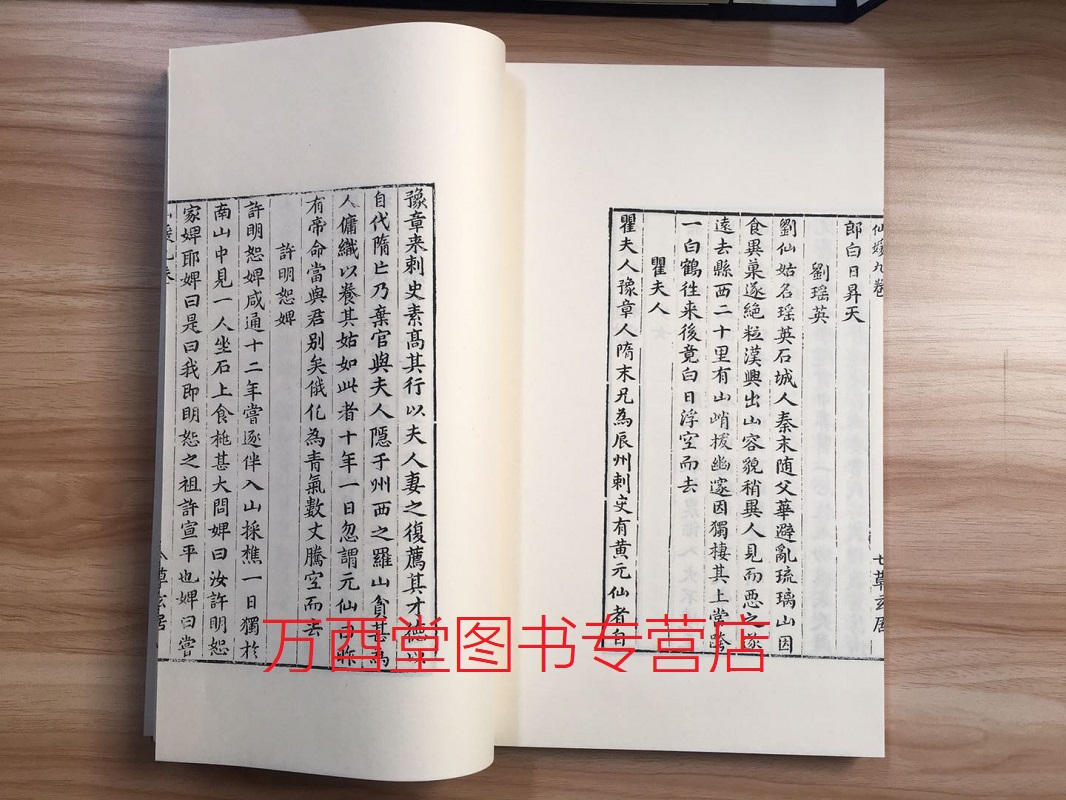 仙媛九卷
七草玄居
郎白日昇天
劉瑶英
劉仙姑名瑶英石城人秦末随父華避亂琉璃山因
食異菓遂絶粒漢興出山容貌稍異人見而惡之遂
遠去縣西二十里有山峭拔幽邃因獨棲其上常跨
一白鶴徃来後竟白日浮空而去
瞿夫人
瞿夫人豫章人隋末兄為辰州刺史有黄元仙者自
豫章来刺史素髙其行以夫人妻之復薦其才德以
自代隋亡乃棄官與夫人隱于州西之羅山貧甚為
人傭織以養其姑如此者十年一日忽謂元仙曰昨
有帝命當與君别矣俄化為青氣數丈騰空而去
許明恕婢
許明恕婢咸通十二年嘗逐伴入山採樵一日獨於
南山中見一人坐石上食桃甚大問婢曰汝許明恕
家婢耶婢曰是曰我即明恕之祖許宣平也婢曰嘗
八草玄居
万西堂图书专营店